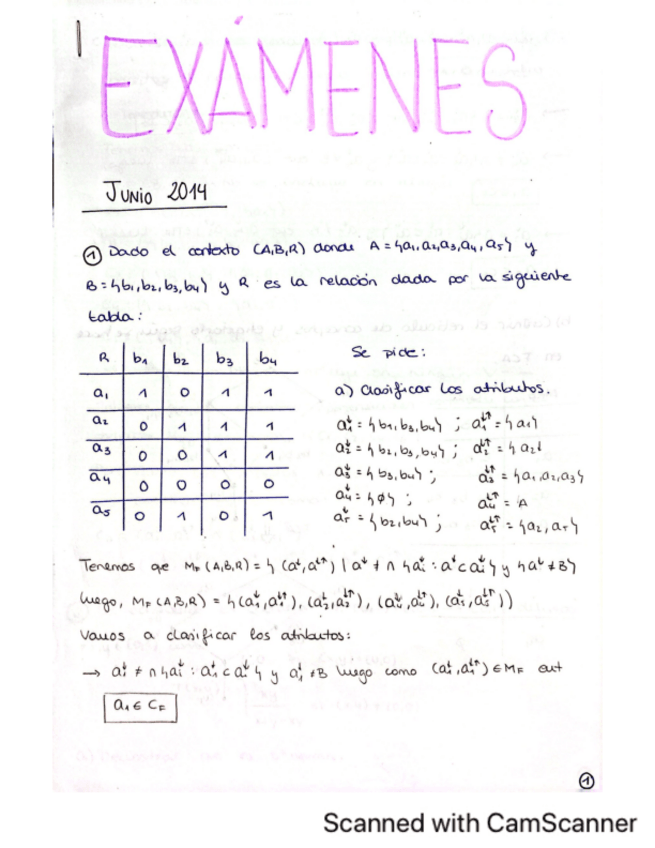 EXÁMENES
Junio 2014
① Dado el contexto (A,B,R) donde A = {a₁,a₂,a₃,a₄,a₅} y
B = {b₁,b₂,b₃,b₄} y R es la relación dada por la siguiente
tabla:
R b₁ b₂ b₃ b₄
a₁ 1 0 1 1
a₂ 0 1 1 1
a₃ 0 0 1 1
a₄ 0 0 0 0
a₅ 0 1 0 1
Se pide:
a) Clasificar los atributos.
a₁↓ = {b₁,b₃,b₄} ; a₁↓↑ = {a₁}
a₂↓ = {b₂,b₃,b₄} ; a₂↓↑ = {a₂}
a₃↓ = {b₃,b₄} ; a₃↓↑ = {a₁,a₂,a₃}
a₄↓ = {∅} ; a₄↓↑ = A
a₅↓ = {b₂,b₄} ; a₅↓↑ = {a₂,a₅}
Tenemos que M_F (A,B,R) = { (a↓,a↓↑) | a↓ ≠ ∩ {aᵢ↓ : a↓ ⊂ aᵢ↓} y {a↓ ≠ B}
luego, M_F (A,B,R) = {(a₁↓,a₁↓↑), (a₂↓,a₂↓↑), (a₄↓,a₄↓↑), (a₅↓,a₅↓↑)}
Vamos a clasificar los atributos:
→ a₁↓ ≠ ∩ {aᵢ↓ : a₁↓ ⊂ aᵢ↓} y a₁↓ ≠ B luego como (a₁↓,a₁↓↑) ∈ M_F ent
a₁ ∈ C_F
①
Scanned with CamScanner